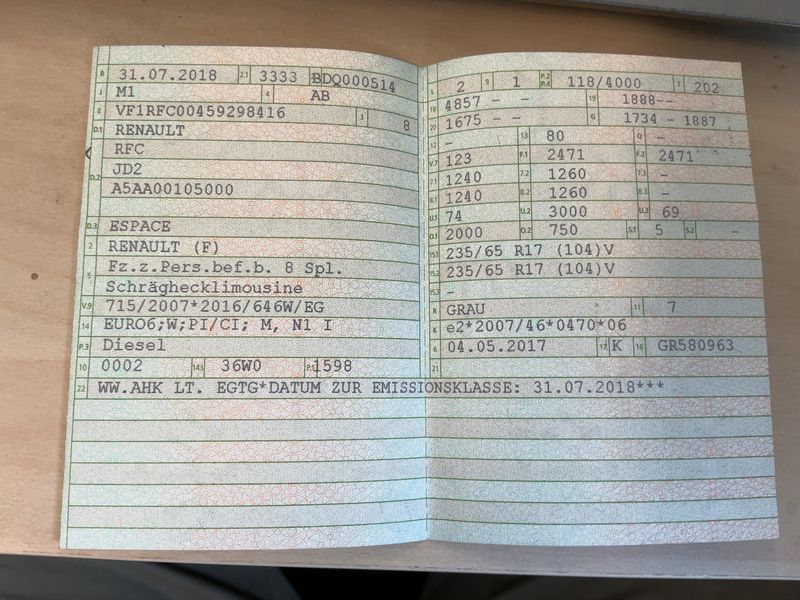 B 31.07.2018 2.1 3333 BDQ000514
J M1 4 AB
E VF1RFC00459298416 3 8
D.1 RENAULT
RFC
JD2
D.2 A5AA00105000
D.3 ESPACE
2 RENAULT (F)
5 Fz.z.Pers.bef.b. 8 Spl.
Schräghecklimousine
V.9 715/2007*2016/646W/EG
14 EURO6;W;PI/CI; M, N1 I
P.3 Diesel
10 0002 14.1 36W0 P.1 1598
22 WW.AHK LT. EGTG*DATUM ZUR EMISSIONSKLASSE: 31.07.2018***
L 2 9 1 P.2 P.4 118/4000 T 202
18 4857 - - 19 1888--
20 1675 - - G 1734 - 1887
12 - 13 80 Q -
V.7 123 F.1 2471 F.2 2471
7.1 1240 7.2 1260 7.3 -
8.1 1240 8.2 1260 8.3 -
U.1 74 U.2 3000 U.3 69
O.1 2000 O.2 750 S.1 5 S.2 -
15.1 235/65 R17 (104)V
15.2 235/65 R17 (104)V
15.3 -
R GRAU 11 7
K e2*2007/46*0470*06
6 04.05.2017 17 K 16 GR580963
21